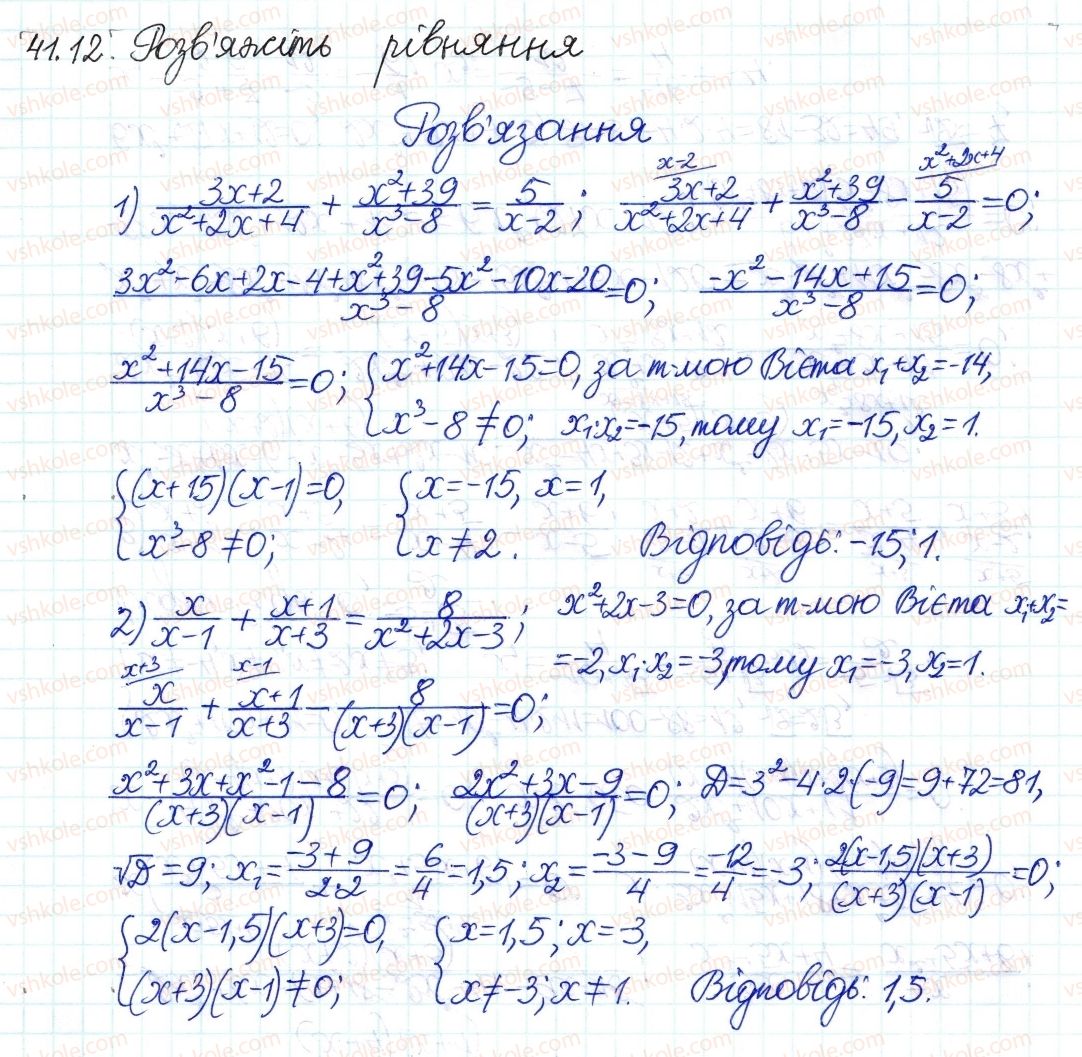 41.12. Розв'яжіть рівняння
Розв'язання
1) (3x+2)/(x²+2x+4) + (x²+39)/(x³-8) = 5/(x-2); (3x+2)/(x²+2x+4) (x-2) + (x²+39)/(x³-8) - 5/(x-2) (x²+2x+4) = 0;
(3x²-6x+2x-4+x²+39-5x²-10x-20)/(x³-8) = 0; (-x²-14x+15)/(x³-8) = 0;
(x²+14x-15)/(x³-8) = 0; { x²+14x-15=0, за т-мою Вієта x₁+x₂=-14,
x³-8≠0; x₁·x₂=-15, тому x₁=-15, x₂=1.
{ (x+15)(x-1)=0, { x=-15, x=1,
x³-8≠0; x≠2. Відповідь: -15; 1.
2) x/(x-1) + (x+1)/(x+3) = 8/(x²+2x-3); x²+2x-3=0, за т-мою Вієта x₁+x₂=
=-2, x₁·x₂=-3, тому x₁=-3, x₂=1.
x/(x-1) (x+3) + (x+1)/(x+3) (x-1) - 8/((x+3)(x-1)) = 0;
(x²+3x+x²-1-8)/((x+3)(x-1)) = 0; (2x²+3x-9)/((x+3)(x-1)) = 0; D=3²-4·2·(-9)=9+72=81,
√D=9; x₁=(-3+9)/(2·2)=6/4=1,5; x₂=(-3-9)/4=-12/4=-3; 2(x-1,5)(x+3)/((x+3)(x-1))=0;
{ 2(x-1,5)(x+3)=0, { x=1,5; x=-3,
(x+3)(x-1)≠0; x≠-3; x≠1. Відповідь: 1,5.
vshkole.com